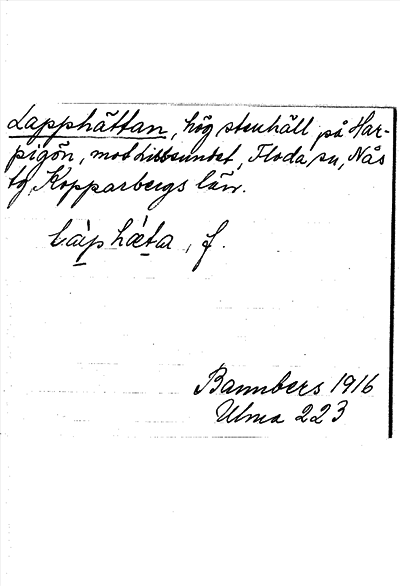 Lapphättan, hög stenhäll på Har-
pigön, mot Lissundet, Floda sn, Nås
tg, Kopparbergs län.
làphǽta, f.
Bannbers 1916
Ulma 223